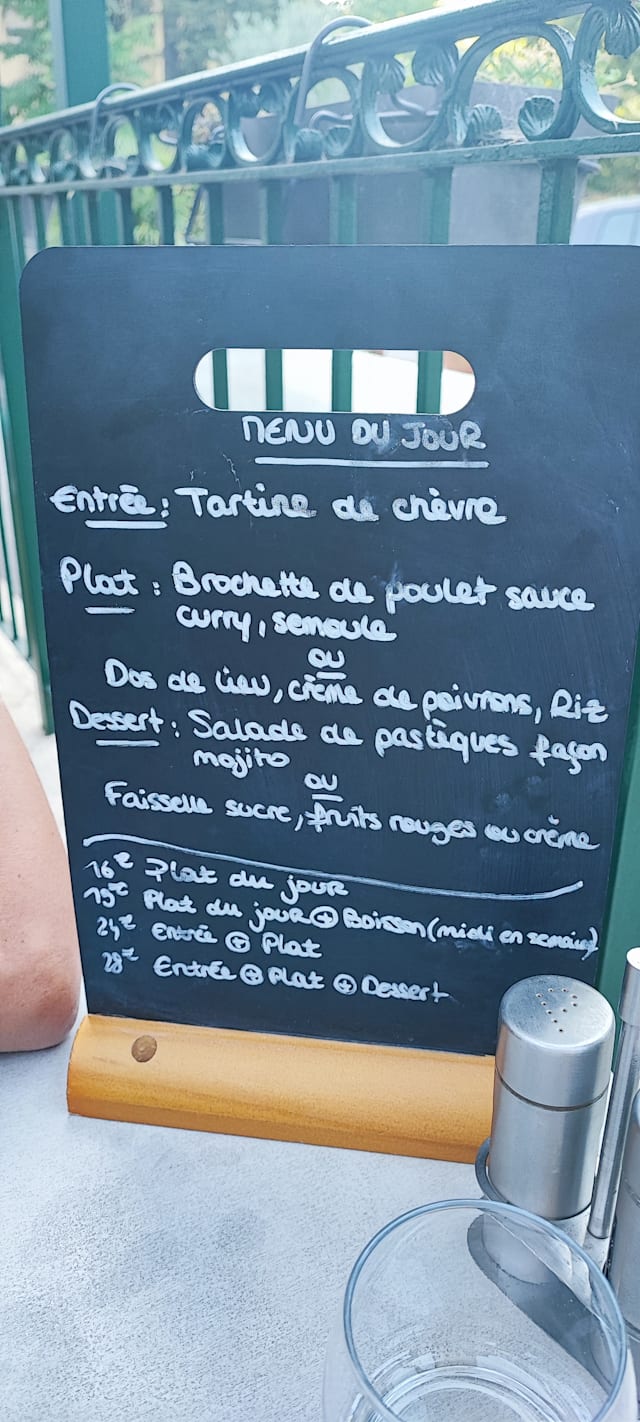 MENU DU JOUR
Entrée : Tartine de chèvre
Plat : Brochette de poulet sauce
curry, semoule
ou
Dos de lieu, crème de poivrons, Riz
Dessert : Salade de pastèques façon
mojito
ou
Faisselle sucre, fruits rouges ou crème
16€ Plat du jour
19€ Plat du jour + Boisson (midi en semaine)
24€ Entrée + Plat
28€ Entrée + Plat + Dessert